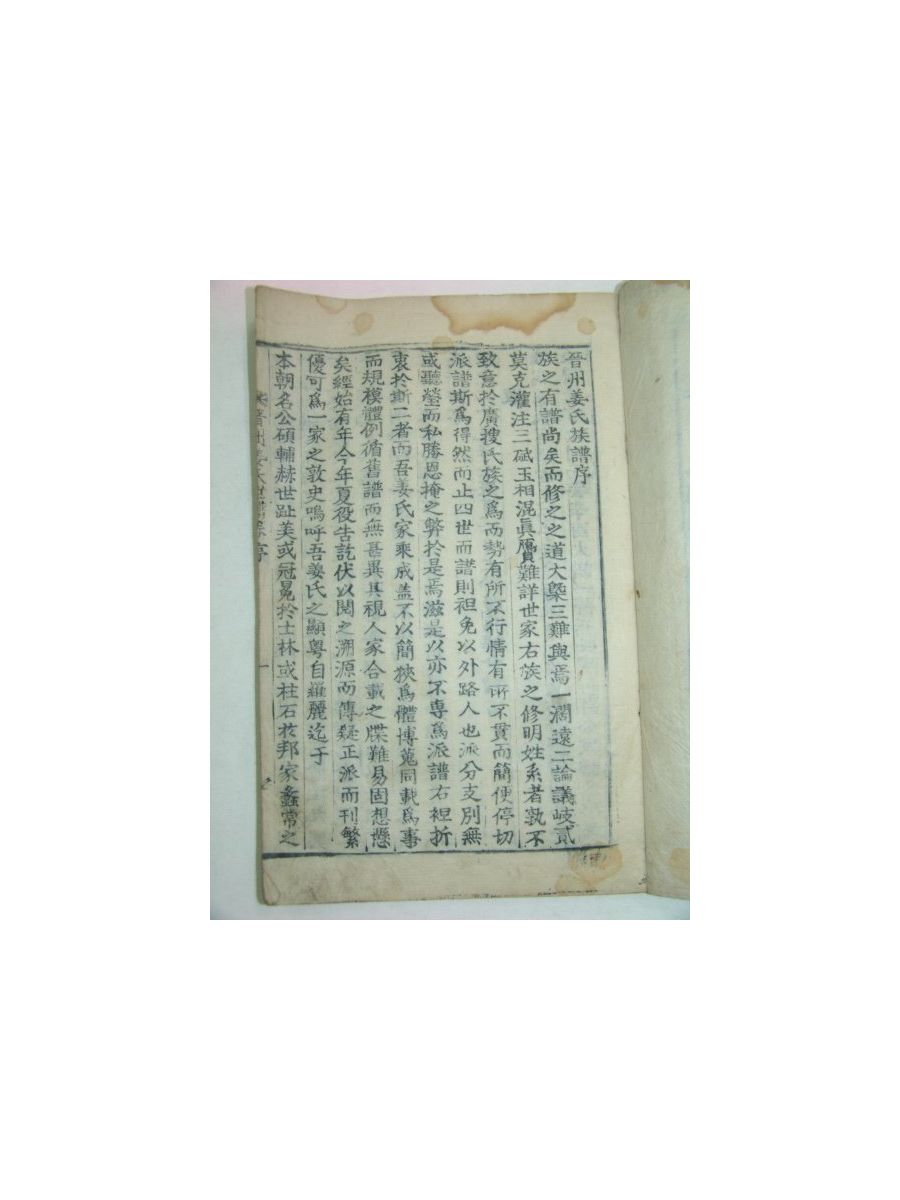 晉州姜氏族譜序
族之有譜尚矣而修之之道大槩三難與焉一濶遠二論議岐貳
莫克灌注三砥玉相混眞贗難詳世家右族之修明姓系者孰不
致意於廣搜氏族之爲而勢有所不行情有所不貫而簡便停切
派譜斯爲得然而止四世而譜則袒免以外路人也派分支別無
或聽瑩而私勝恩掩之弊於是焉滋是以亦不専爲派譜右袒折
衷於斯二者而吾姜氏家乘成盖不以簡狹爲軆博蒐同載爲事
而規模體例循舊譜而無甚異具視人家合載之牒難易固想懸
矣經始有年今年夏役告訖伏以閱之溯源而傳疑正派而刊繁
優可爲一家之敦史嗚呼吾姜氏之顯粤自羅麗迄于
本朝名公碩輔赫世趾美或冠冕於士林或柱石於邦家彝常之
晉州姜氏世譜 序 一